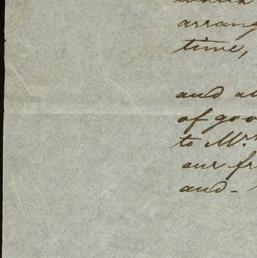 which
arrang
time,
and al
of goo
to Mrs
our fr
and -